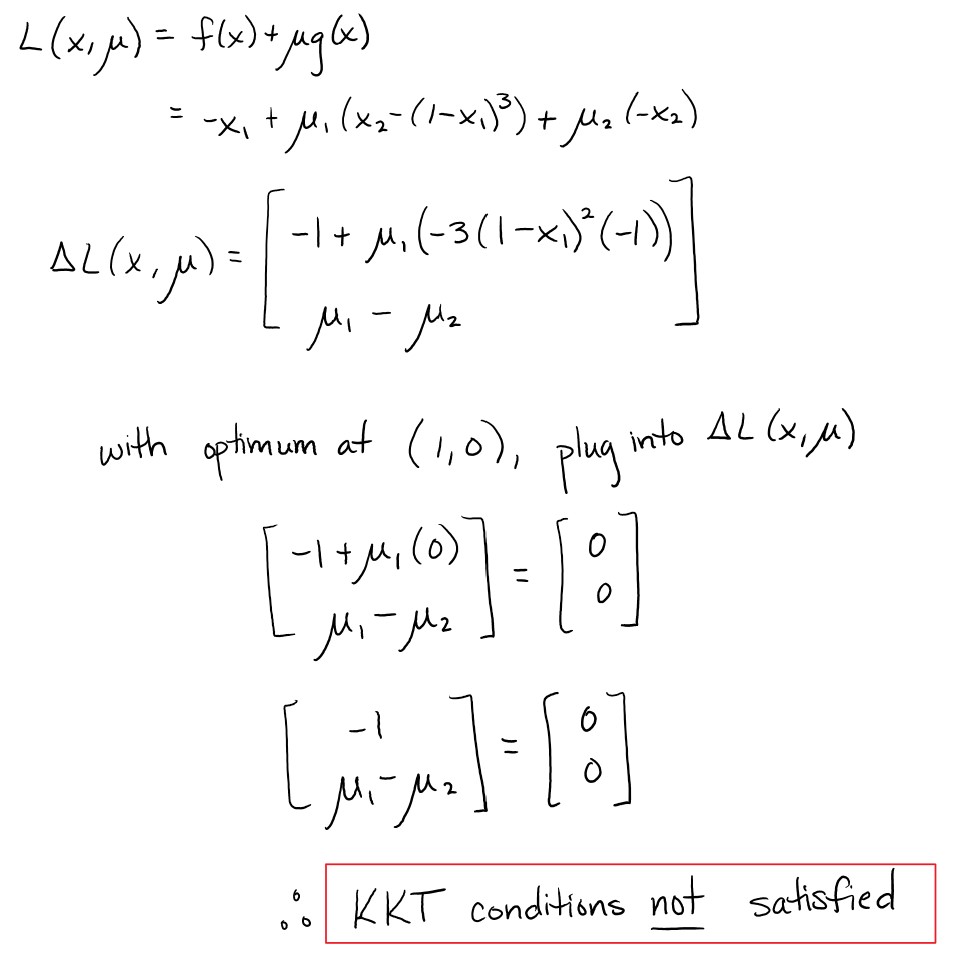 L(x, μ) = f(x) + μg(x)
= -x₁ + μ₁(x₂-(1-x₁)³) + μ₂(-x₂)
ΔL(x, μ) = [ -1 + μ₁(-3(1-x₁)²(-1)) ]
[ μ₁ - μ₂ ]
with optimum at (1,0), plug into ΔL(x, μ)
[ -1 + μ₁(0) ] = [ 0 ]
[ μ₁ - μ₂ ] [ 0 ]
[ -1 ] = [ 0 ]
[ μ₁ - μ₂ ] [ 0 ]
∴ KKT conditions not satisfied